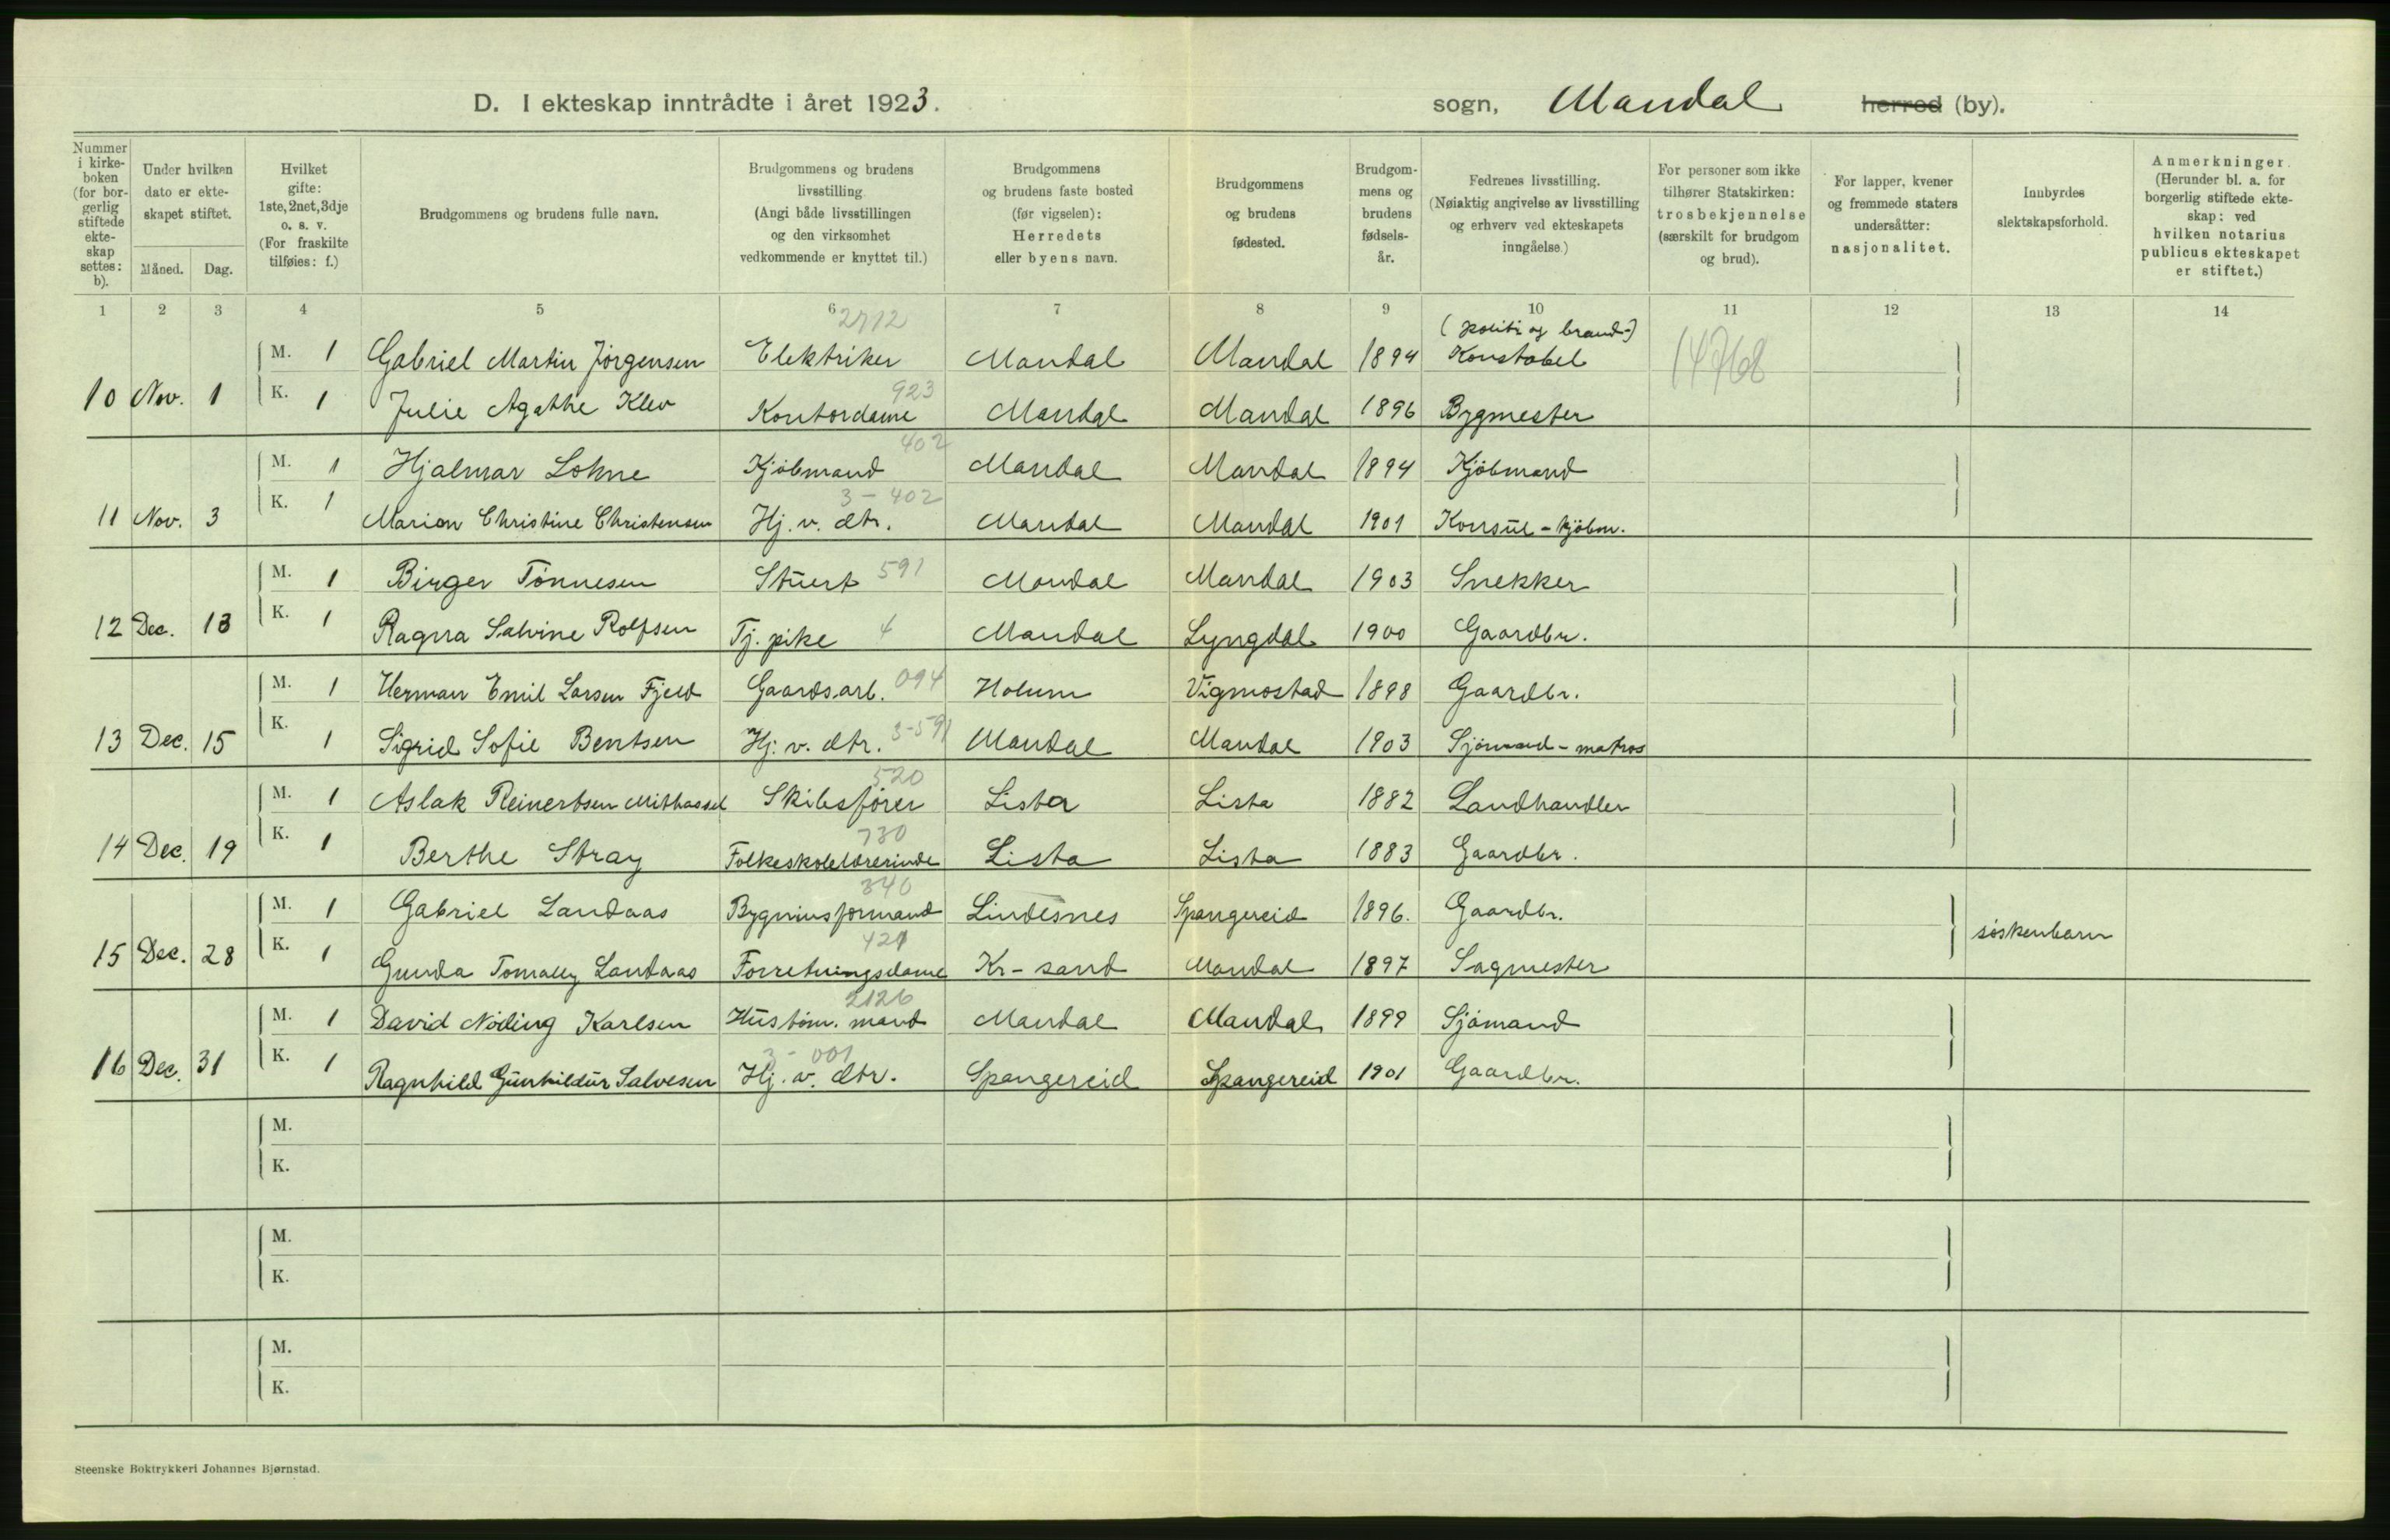 D. I ekteskap inntrådte i året 1923.
sogn, Mandal herred (by).
Nummer i kirke-boken (for bor-gerlig stiftede ekte-skap settes: b).
Under hvilken dato er ekte-skapet stiftet.
Måned. Dag.
Hvilket gifte: 1ste, 2net, 3dje o. s. v. (For fraskilte tilføies: f.)
Brudgommens og brudens fulle navn.
Brudgommens og brudens livsstilling. (Angi både livsstillingen og den virksomhet vedkommende er knyttet til.)
Brudgommens og brudens faste bosted (før vigselen): Herredets eller byens navn.
Brudgommens og brudens fødested.
Brudgom-mens og brudens fødsels-år.
Fedrenes livsstilling. (Nøiaktig angivelse av livsstilling og erhverv ved ekteskapets inngåelse.)
For personer som ikke tilhører Statskirken: trosbekjennelse (særskilt for brudgom og brud).
For lapper, kvener og fremmede staters undersåtter: nasjonalitet.
Innbyrdes slektskapsforhold.
Anmerkninger. (Herunder bl. a. for borgerlig stiftede ekte-skap: ved hvilken notarius publicus ekteskapet er stiftet.)
1 2 3 4 5 6 7 8 9 10 11 12 13 14
2712 (politi og brand-)
M. 1 Gabriel Martin Jörgensen Elektriker Mandal Mandal 1894 Konstabel 14768
923
10 Nov. 1 K. 1 Julie Agathe Klev Kontordame Mandal Mandal 1896 Bygmester
402
M. 1 Hjalmar Lohne Kjöbmand Mandal Mandal 1894 Kjöbmand
3-402
11 Nov. 3 K. 1 Marion Christine Christensen Hj. v. dtr. Mandal Mandal 1901 Konsul - kjöbm.
M. 1 Birger Tönnesen Stuert 591 Mandal Mandal 1903 Snekker
12 Dec. 13 K. 1 Ragna Salvine Rolfsen Tj. pike 4 Mandal Lyngdal 1900 Gaardbr.
M. 1 Herman Emil Larsen Fjeld Gaardsarb. 094 Holum Vigmostad 1898 Gaardbr.
13 Dec. 15 K. 1 Sigrid Sofie Bentsen Hj. v. dtr. 3-591 Mandal Mandal 1903 Sjömand - matros
520
M. 1 Aslak Reinertsen Mithassel Skibsförer Lista Lista 1882 Landhandler
730
14 Dec. 19 K. 1 Berthe Stray Folkeskolelærerinde Lista Lista 1883 Gaardbr.
340
M. 1 Gabriel Landaas Bygninsformand Lindesnes Spangereid 1896. Gaardbr.
421
15 Dec. 28 K. 1 Gunda Tomally Landaas Forretningsdame Kr-sand Mandal 1897 Sagmester söskenbarn
2126
M. 1 David Nöding Karlsen Hustöm. mand Mandal Mandal 1899 Sjömand
3-001
16 Dec. 31 K. 1 Ragnhild Gunhildur Salvesen Hj. v. dtr. Spangereid Spangereid 1901 Gaardbr.
M.
K.
M.
K.
M.
K.
Steenske Boktrykkeri Johannes Bjørnstad.